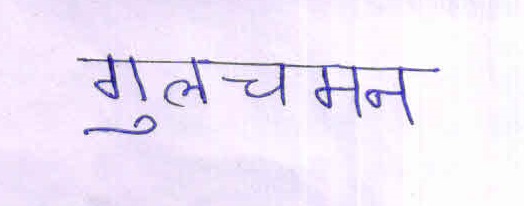 गुलचमन